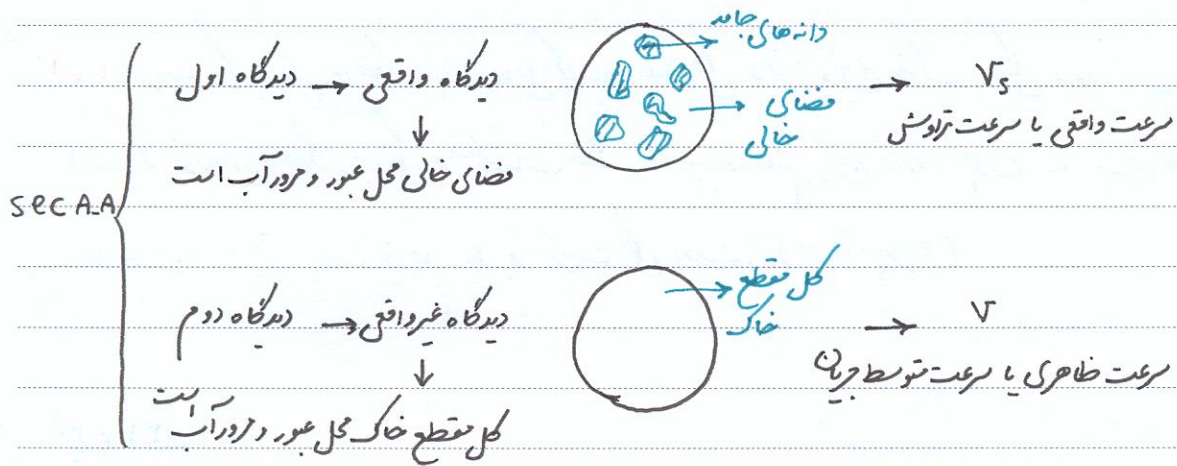 sec A-A
دیدگاه اول → دیدگاه واقعی
↓
فضای خالی محل عبور و مرور آب است
دانه‌های جامد
فضای
خالی
→ Vs
سرعت واقعی یا سرعت تراوش
دیدگاه دوم → دیدگاه غیرواقعی
↓
کل مقطع خاک محل عبور و مرور آب است
کل مقطع
خاک
→ V
سرعت ظاهری یا سرعت متوسط جریان